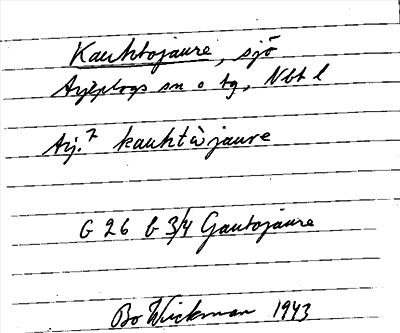 Kauktojaure, sjö
Arjeplogs sn o tg, Nbt l
Arj.? kauktàjaure
G 26 b 3/4 Gautojaure
Bo Wickman 1943